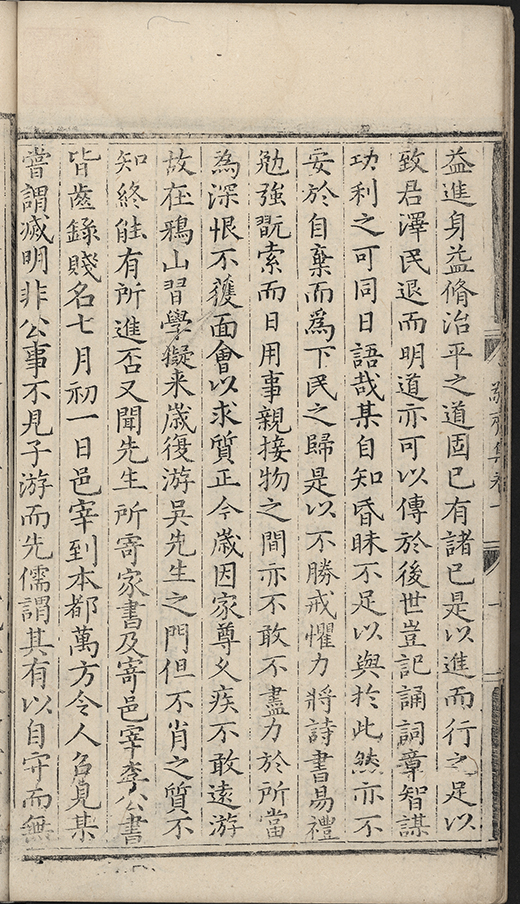 益進身益脩治平之道固已有諸已是以進而行之足以
致君澤民退而明道亦可以傳於後世豈記誦詞章智謀
功利之可同日語哉某自知昏昧不足以與於此然亦不
安於自棄而爲下民之歸是以不勝戒懼力將詩書易禮
勉強翫索而日用事親接物之間亦不敢不盡力於所當
為深恨不獲面會以求質正今歲因家尊久疾不敢遠游
故在鴉山習學擬来歲復游吳先生之門但不肖之質不
知終能有所進否又聞先生所寄家書及寄邑宰李公書
皆齒錄賤名七月初一日邑宰到本都萬方令人覔見某
嘗謂滅明非公事不見子游而先儒謂其有以自守而無
敬齋集卷一